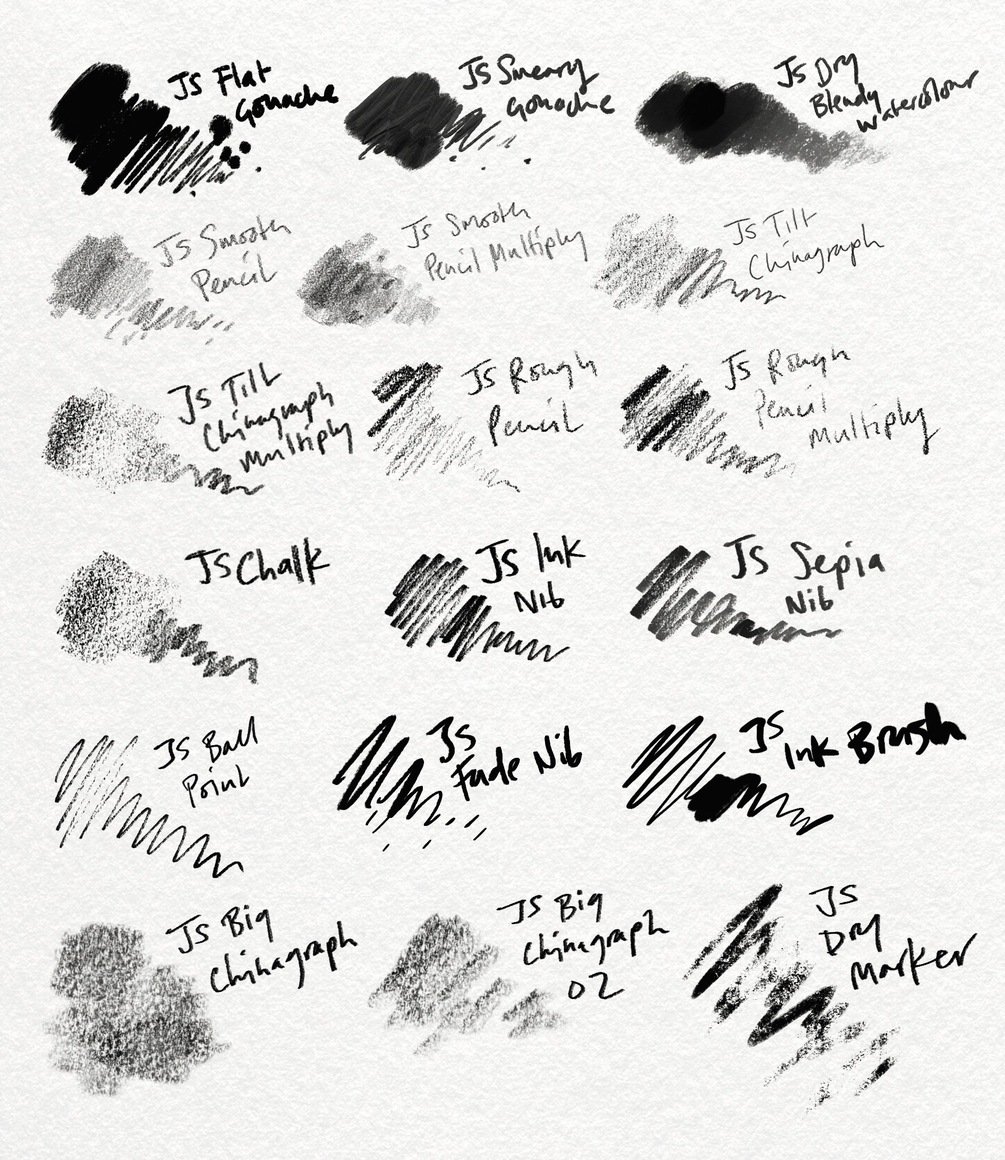 JS Flat
Gouache
JS Smeary
Gouache
JS Dry
Blendy
Watercolour
JS Smooth
Pencil
JS Smooth
Pencil Multiply
JS Tilt
Chinagraph
JS Tilt
Chinagraph
Multiply
JS Rough
Pencil
JS Rough
Pencil
Multiply
JS Chalk
JS Ink
Nib
JS Sepia
Nib
JS Ball
Point
JS
Fade Nib
JS
Ink Brush
JS Big
Chinagraph
JS Big
Chinagraph
02
JS
Dry
Marker